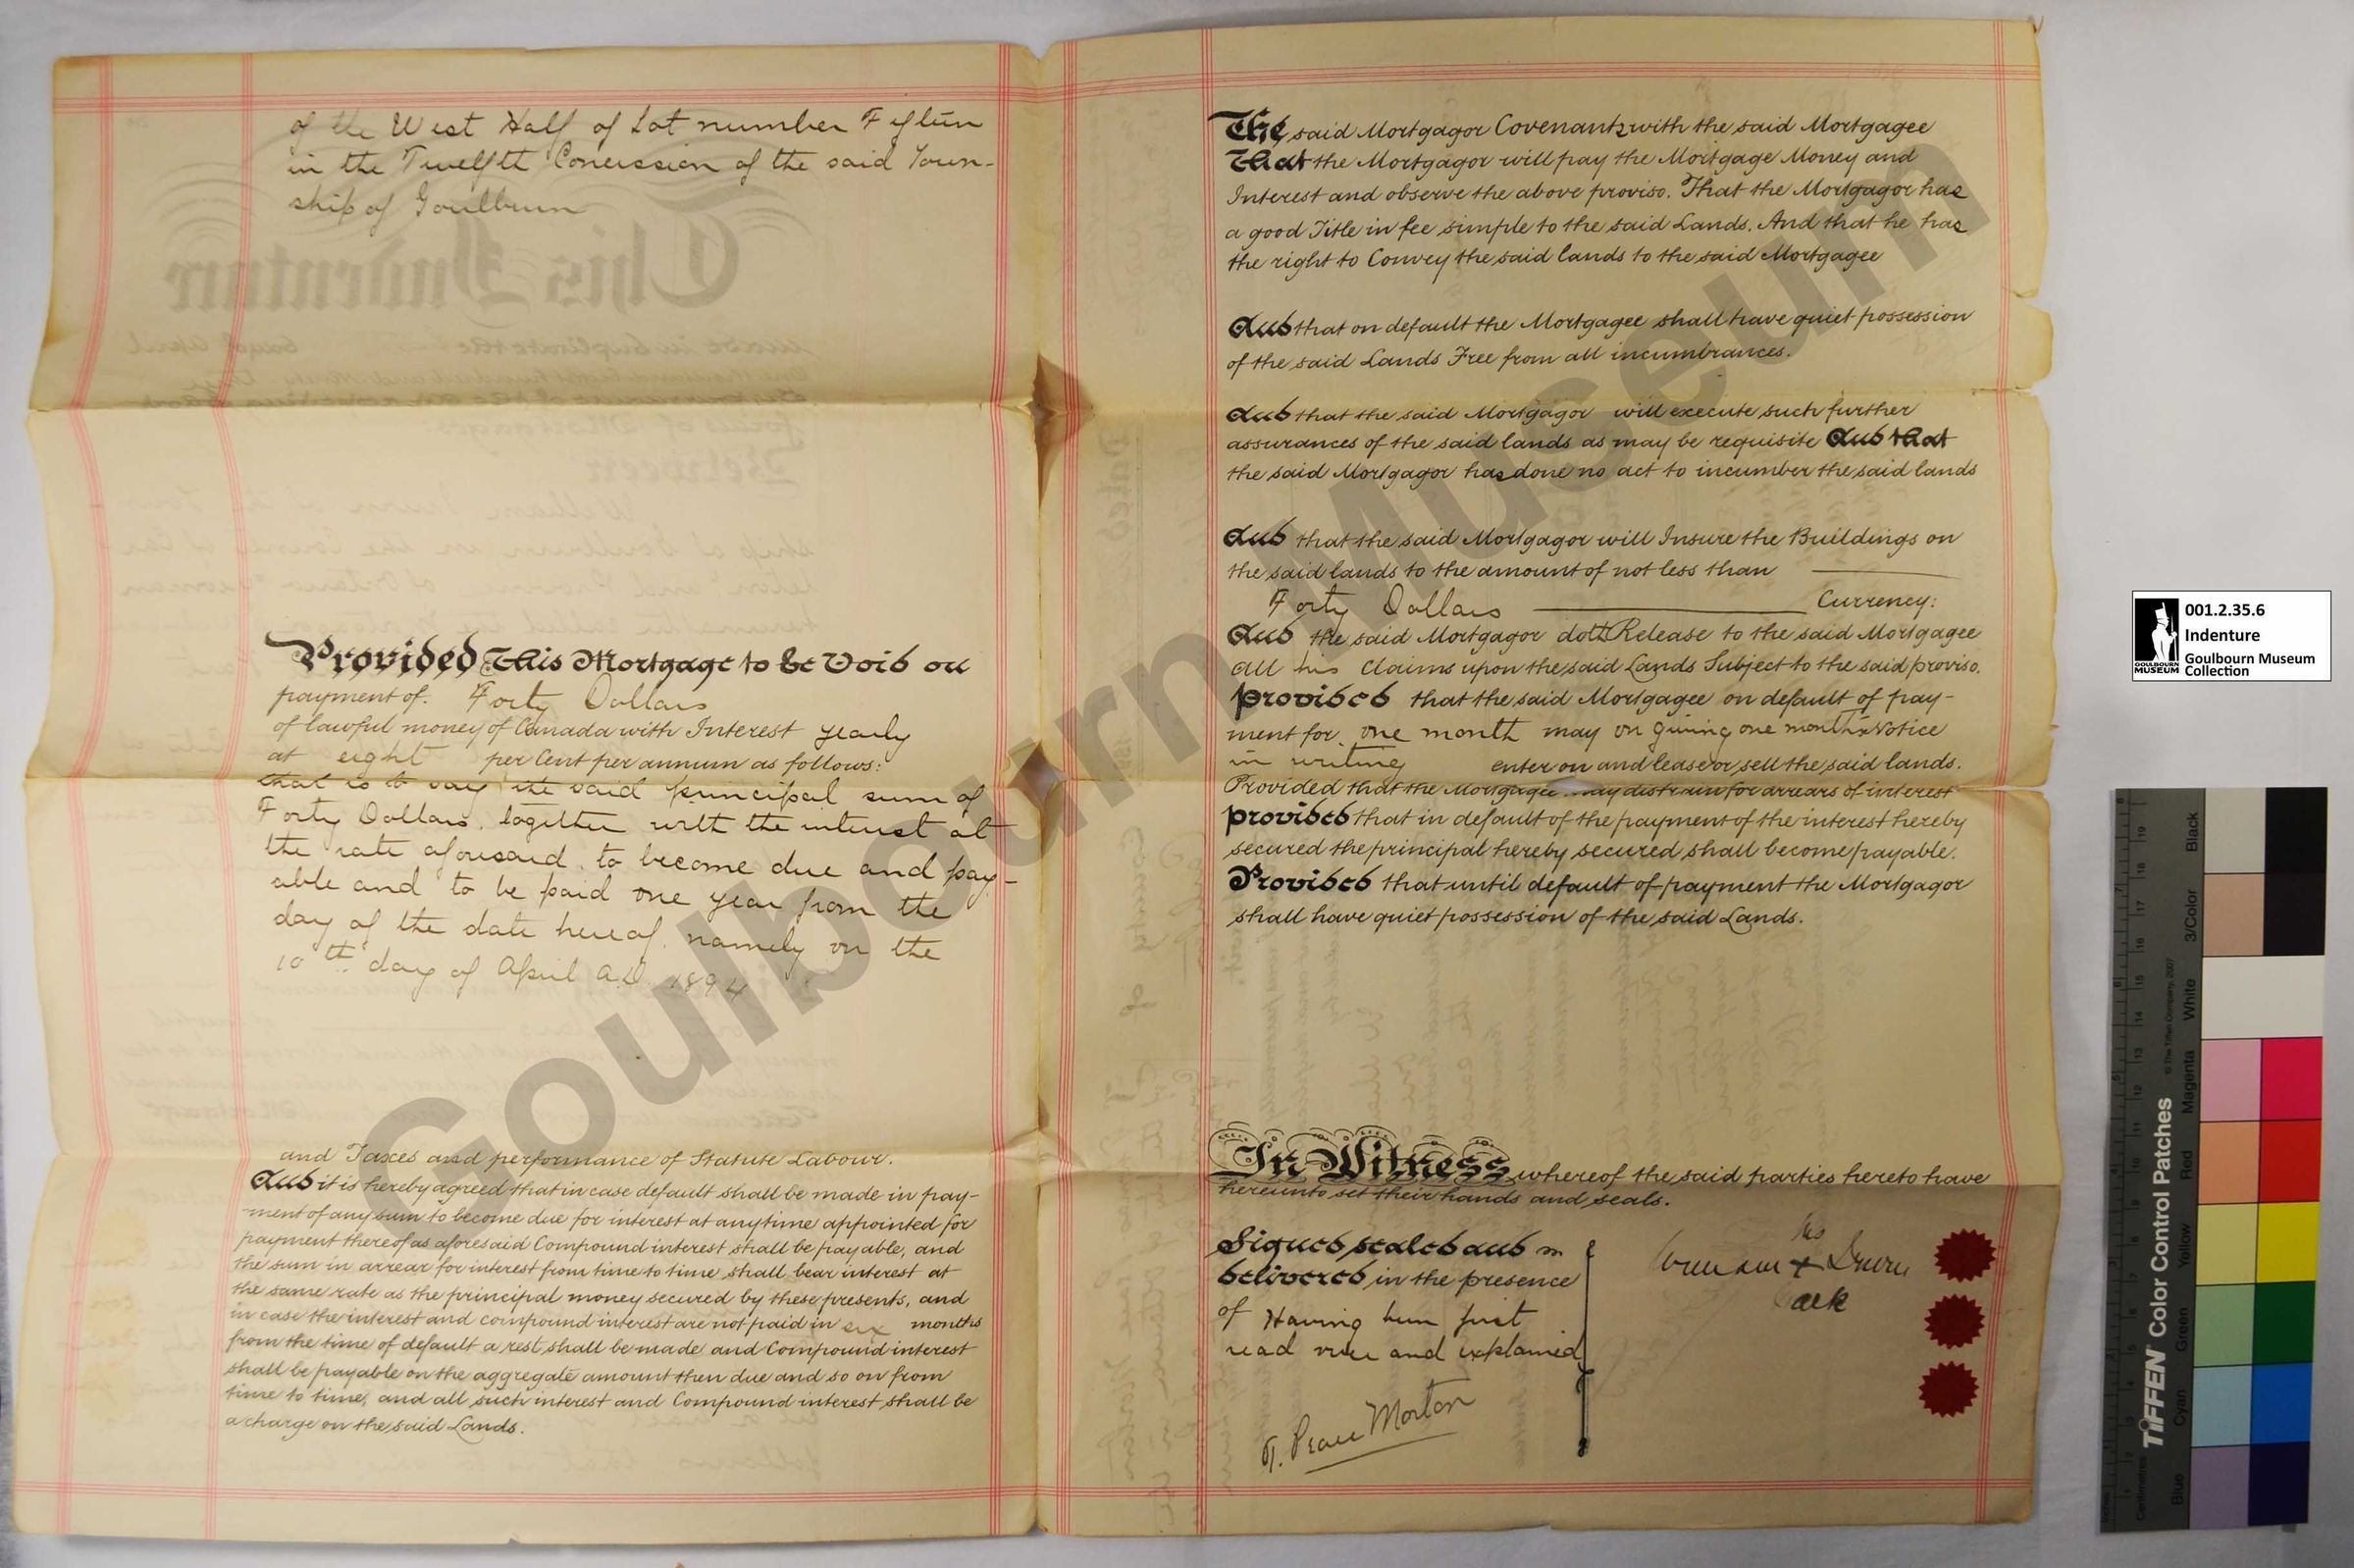 of the West Half of Lot number Fifteen
in the Twelfth Concession of the said Town-
ship of Goulburn
This Indenture
Provided This Mortgage to be Void on
payment of. Forty Dollars
of lawful money of Canada with Interest yearly
at eight per Cent per annum as follows:
that is to say the said principal sum of
Forty Dollars. together with the interest at
the rate aforesaid. to become due and pay-
able and to be paid one year from the
day of the date hereof. namely on the
10th day of April A.D. 1894
and Taxes and performance of Statute Labour.
And it is hereby agreed that in case default shall be made in pay-
ment of any sum to become due for interest at any time appointed for
payment thereof as aforesaid Compound interest shall be payable, and
the sum in arrear for interest from time to time shall bear interest at
the same rate as the principal money secured by these presents, and
in case the interest and compound interest are not paid in six months
from the time of default a rest shall be made and Compound interest
shall be payable on the aggregate amount then due and so on from
time to time, and all such interest and Compound interest shall be
a charge on the said Lands.
The said Mortgagor Covenants with the said Mortgagee
That the Mortgagor will pay the Mortgage Money and
Interest and observe the above proviso. That the Mortgagor has
a good Title in fee simple to the said Lands. And that he has
the right to Convey the said lands to the said Mortgagee
And that on default the Mortgagee shall have quiet possession
of the said Lands Free from all incumbrances.
And that the said Mortgagor will execute such further
assurances of the said lands as may be requisite And that
the said Mortgagor has done no act to incumber the said lands
And that the said Mortgagor will Insure the Buildings on
the said lands to the amount of not less than
Forty Dollars Currency:
And the said Mortgagor doth Release to the said Mortgagee
All his Claims upon the said Lands Subject to the said proviso.
Provided that the said Mortgagee on default of pay-
ment for one month may on giving one month's Notice
in writing enter on and lease or sell the said lands.
Provided that the Mortgagee may distrain for arrears of interest
Provided that in default of the payment of the interest hereby
secured the principal hereby secured shall become payable.
Provided that until default of payment the Mortgagor
shall have quiet possession of the said Lands.
In Witness whereof the said parties hereto have
hereunto set their hands and seals.
Signed, sealed and
delivered in the presence
of Having been first
read over and explained
Morton
his
William X
mark
Goulbourn Museum
001.2.35.6
Indenture
Goulbourn Museum
Collection
GOULBOURN
MUSEUM
TIFFEN Color Control Patches
© The Tiffen Company, 2007
Blue
Cyan
Green
Yellow
Red
Magenta
White
3/Color
Black